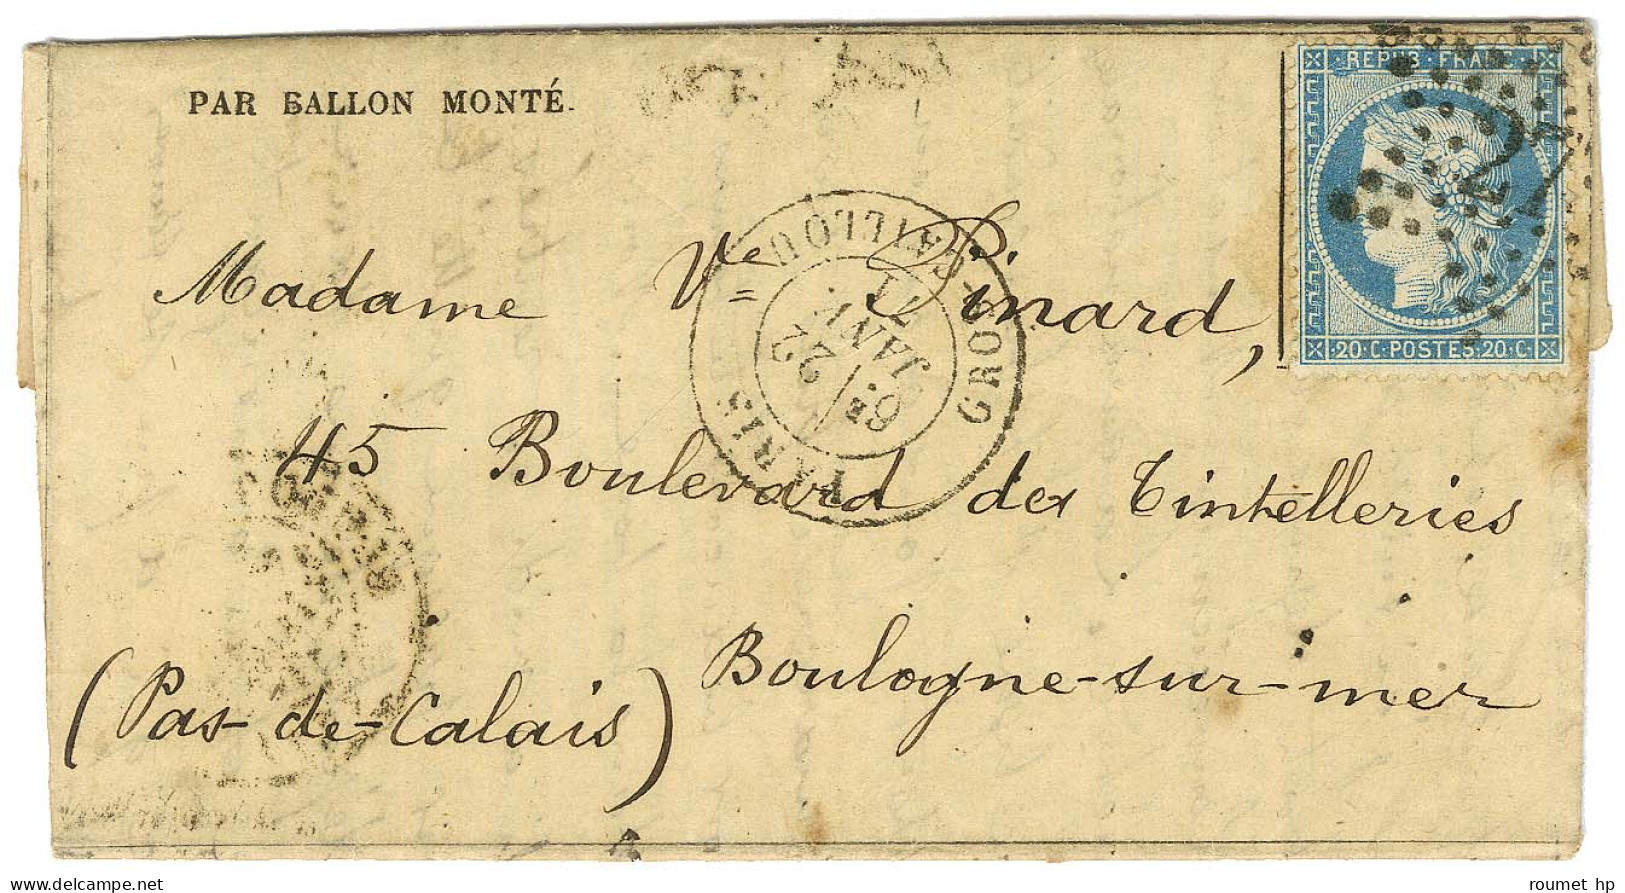 PAR BALLON MONTÉ.
REPUB · FRANC ·
27
20 · C · POSTES · 20 · C ·
PARIS GROS-CAILLOU
6E
22
JANV.
71
Madame Ve Pinard,
45 Boulevard des Tintelleries
Boulogne-sur-mer
(Pas-de-Calais)
roumet hp